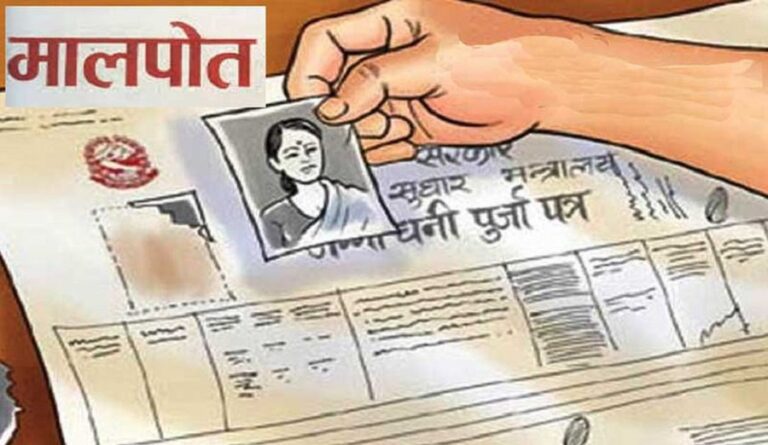 मालपोत
सरकार
सुधार मन्त्रालय
धनी पुर्जा पत्र